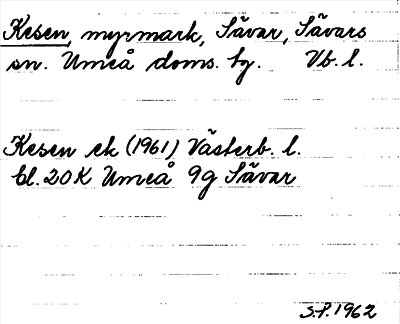 Kesen, myrmark, Sävar, Sävars
sn. Umeå doms. bg. Vb. l.
Kesen ek (1961) Västerb. l.
bl. 20K Umeå 9g Sävar
S.P. 1962